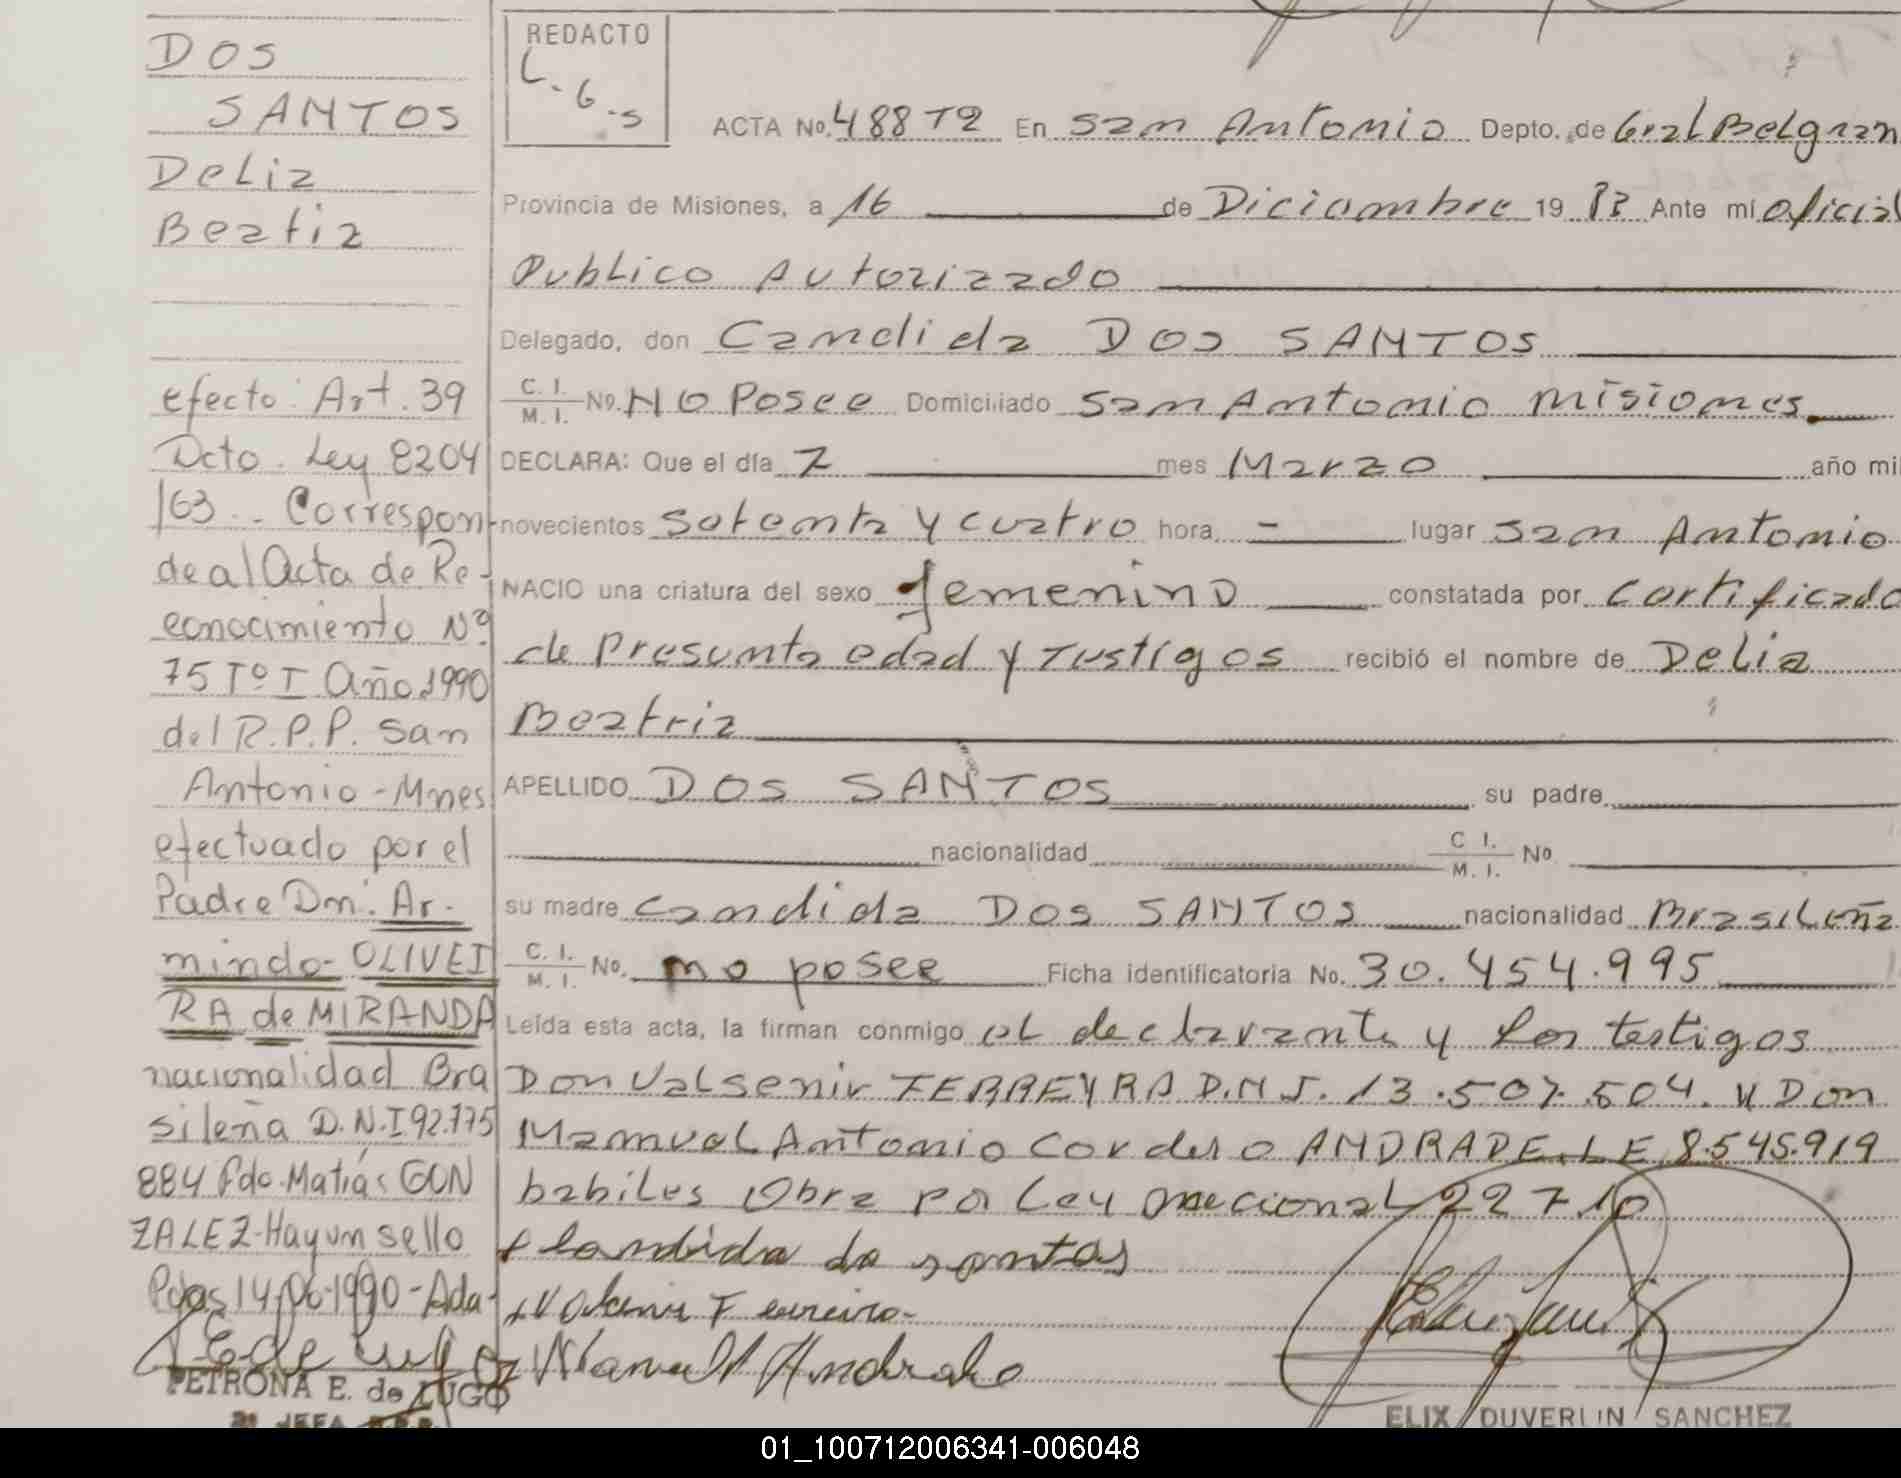 DOS
SANTOS
Delia
Beatiz
efecto: Art. 39
Dcto. Ley 8204
/63.- Correspon-
de al Acta de Re-
conocimiento Nº
75 Tº I Año 1990
del R.P.P. San
Antonio-Mnes
efectuado por el
Padre Dn: Ar-
mindo-OLIVEI
RA de MIRANDA
nacionalidad Bra
sileña D.N.I 92.775
884 Fdo. Matías GON
ZALEZ-Hay un sello
Pdas 14/06-1990-Ada-
PETRONA E. de LUGO
JEFA
REDACTO
L.G.S
ACTA No. 488 T2 En San Antonio Depto. de Gral Belgran
Provincia de Misiones, a 16 de Diciembre 19 83 Ante mí oficial
Publico Autorizado
Delegado, don Candida DOS SANTOS
C. I. / M. I. No. NO Posee Domiciliado San Antonio Misiones
DECLARA: Que el día 7 mes Marzo año mil
novecientos setenta y cuatro hora - lugar San Antonio
NACIO una criatura del sexo femenino constatada por certificado
de Presunta edad y Testigos recibió el nombre de Delia
Beatriz
APELLIDO DOS SANTOS su padre
nacionalidad C. I. / M. I. No
su madre Candida DOS SANTOS nacionalidad Brasileña
C. I. / M. I. No. no posee Ficha identificatoria No. 30.454.995
Leída esta acta, la firman conmigo el declarante y los testigos
Don Valsenir FERREYRA D.N.I. 13.507.504. y Don
Manuel Antonio Cordero ANDRADE. LE 8.545.919
habiles Obra por Ley nacional 22710
Candida do santos
Ferreira
Manuel A Andrade
ELIX DUVERLIN SANCHEZ
01_100712006341-006048